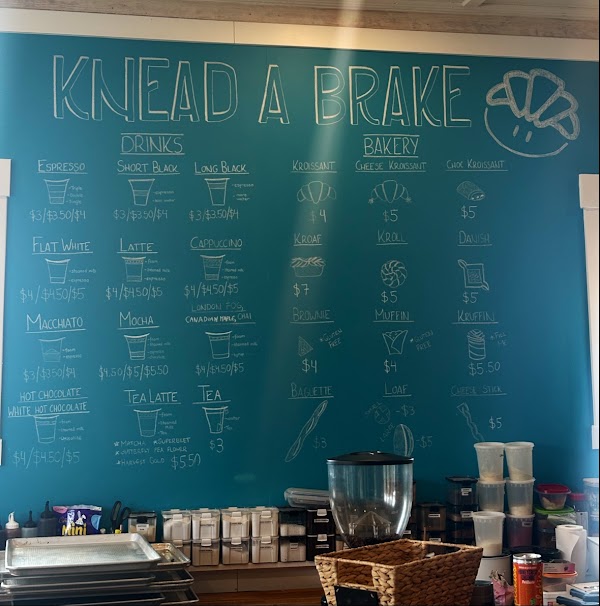 KNEAD A BRAKE
DRINKS
BAKERY
ESPRESSO
SHORT BLACK
LONG BLACK
KROISSANT
CHEESE KROISSANT
CHOC KROISSANT
$3/$3.50/$4
$3/$3.50/$4
$3/$3.50/$4
$4
$5
$5
FLAT WHITE
LATTE
CAPPUCCINO
KROAF
KROLL
DANISH
$4/$4.50/$5
$4/$4.50/$5
$4/$4.50/$5
$7
$5
$5
MACCHIATO
MOCHA
LONDON FOG,
CANADIAN MAPLE, CHAI
BROWNIE
MUFFIN
KRUFFIN
GLUTEN
FREE
GLUTEN
FREE
$3/$3.50/$4
$4.50/$5/$5.50
$4/$4.50/$5
$4
$4
$5.50
HOT CHOCOLATE
WHITE HOT CHOCOLATE
TEA LATTE
TEA
BAGUETTE
LOAF
CHEESE STICK
$4/$4.50/$5
$3
$3
-$3
-$5
$5
*MATCHA *SUPERBEET
*BUTTERFLY PEA FLOWER
*HARVEST GOLD $5.50
MINI